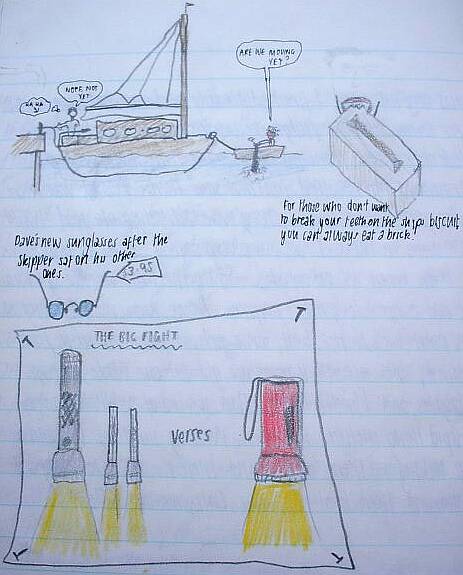 ARE WE MOVING
YET?
NOPE NOT
YET.
HA HA
For those who don't want
to break your teeth on the ships biscuit,
you can always eat a brick!
Dave's new sunglasses after the
skipper sat on his other
ones.
$3.95
THE BIG FIGHT
Verses